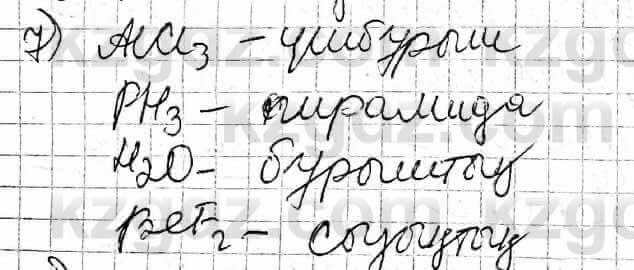 7) AlCl₃ - үшбұрыш
PH₃ - пирамида
H₂O - бұрыштық
BeF₂ - сызықтық